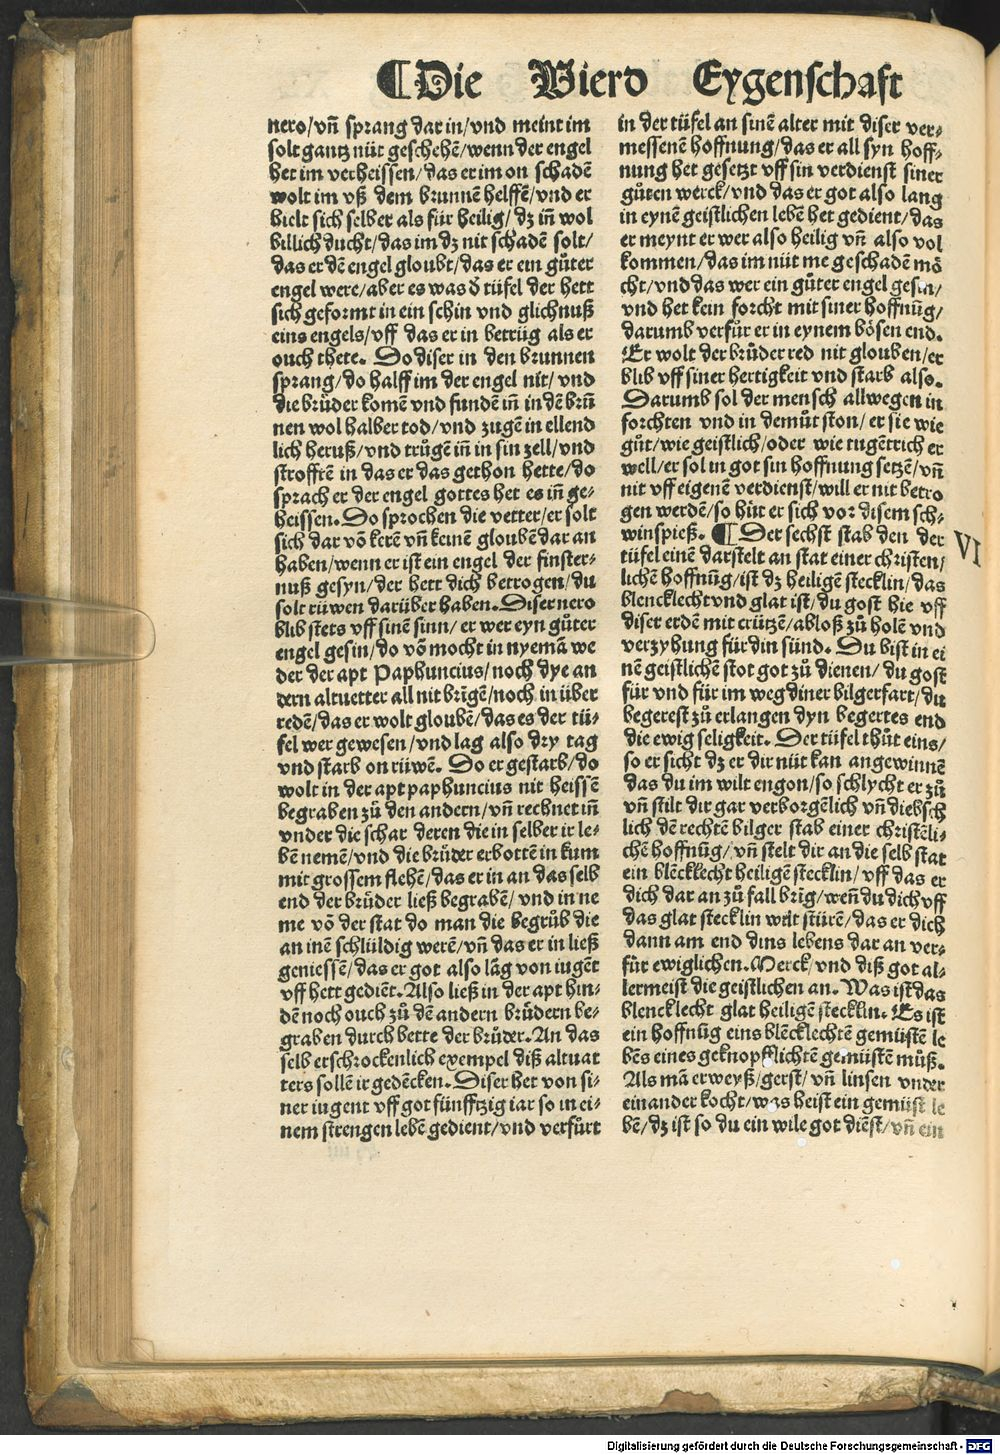 ¶Die Vierd Eygenschaft
nero/vñ sprang dar in/vnd meint im
solt gantz nüt geschehē/wenn der engel
het im verheissen/das er im on schadē
wolt im vß dem brunnē helffē/vnd er
hielt sich selber als für heilig/dz iñ wol
billich ducht/das im dz nit schadē solt/
das er dē engel gloubt/das er ein gůter
engel were/aber es was d̄ tüfel der hett
sich geformt in ein schin vnd glichnuß
eins engels/vff das er in betrüg als er
ouch thete. Do diser in den brunnen
sprang/do halff im der engel nit/vnd
die brůder komē vnd fundē iñ in dē brū
nen wol halber tod/vnd zugē in ellend
lich heruß/vnd trůgē iñ in sin zell/vnd
strofftē in das er das gethon hette/do
sprach er der engel gottes het es iñ ge-
heissen. Do sprochen die vetter/er solt
sich dar vō kerē vñ keinē gloubē dar an
haben/wenn er ist ein engel der finster-
nuß gesyn/der hett dich betrogen/du
solt rüwen darüber haben. Diser nero
blib stets vff sinē sinn/er wer eyn gůter
engel gesin/do vō mocht in nyemā we
der der apt Paphuncius/noch dye an
dern altuetter all nit brīgē/noch in über
redē/das er wolt gloubē/das es der tü-
fel wer gewesen/vnd lag also dry tag
vnd starb on rüwē. Do er gestarb/do
wolt in der apt paphuncius nit heissē
begraben zů den andern/vñ rechnet iñ
vnder die schar deren die in selber ir le-
bē nemē/vnd die brůder erbottē in kum
mit grossem flehē/das er in an das selb
end der brůder ließ begrabē/vnd in ne
me vō der stat do man die begrůb die
an inē schlüldig werē/vñ das er in ließ
geniessē/das er got also lāg von iugēt
vff hett gediēt. Also ließ in der apt hin-
dē noch ouch zů dē andern brůdern be-
graben durch bette der brůder. An das
selb etschrockenlich exempel diß altuat
ters sollē ir gedēcken. Diser het von si-
ner iugent vff got fünfftzig iar so in ei-
nem strengen lebē gedient/vnd verfürt
in der tüfel an sinē alter mit diser ver-
messenē hoffnung/das er all syn hoff-
nung het gesetzt vff sin verdienst siner
gůten werck/vnd das er got also lang
in eynē geistlichen lebē het gedient/das
er meynt er wer also heilig vñ also vol
kommen/das im nüt me geschaden mö
cht/vnd das wer ein gůter engel gesin/
vnd het kein forcht mit siner hoffnūg/
darumb verfůr er in eynem bösen end.
Er wolt der brůder red nit glouben/er
blib vff siner hertigkeit vnd starb also.
Darumb sol der mensch allwegen in
forchten vnd in demůt ston/er sie wie
gůt/wie geistlich/oder wie tugētrich er
well/er sol in got sin hoffnung setzē/vñ
nit vff eigenē verdienst/will er nit betro
gen werdē/so hüt er sich vor disem sch-
winspieß. ¶Der sechst stab den der
VI
tüfel einē darstelt an stat einer christen/
lichē hoffnūg/ist dz heiligē stecklin/das
blencklecht vnd glat ist/du gost hie vff
diser erdē mit crützen/abloß zů holē vnd
verzyhung für din sünd. Du bist in ei
nē geistlichen stot got zů dienen/du gost
für vnd für im weg diner bilgerfart/du
begerest zů erlangen dyn begertes end
die ewig seligkeit. Der tüfel thůt eins/
so er sicht dz er dir nüt kan angewinnē
das du im wilt engon/so schlycht er zů
vñ stilt dir gar verborgēlich vñ diebsch
lich dē rechtē bilger stab einer christēli-
chē hoffnūg/vñ stelt dir an die selb stat
ein blēcklecht heiligē stecklin/vff das er
dich dar an zů fall brīg/weñ du dich vff
das glat stecklin wilt stürē/das er dich
dann am end dins lebens dar an ver-
für ewiglichen. Merck/vnd diß got al-
lermeist die geistlichen an. Was ist das
blencklecht glat heiligē stecklin. Es ist
ein hoffnūg eins blēcklechtē gemüstē le
bēs eines geknopfflichtē gemüstē můß.
Als mā erweyß/gerst/vñ linsen vnder
einander kocht/was heist ein gemüst le
bē/dz ist so du ein wile got diēst/vñ ein
Digitalisierung gefördert durch die Deutsche Forschungsgemeinschaft - DFG